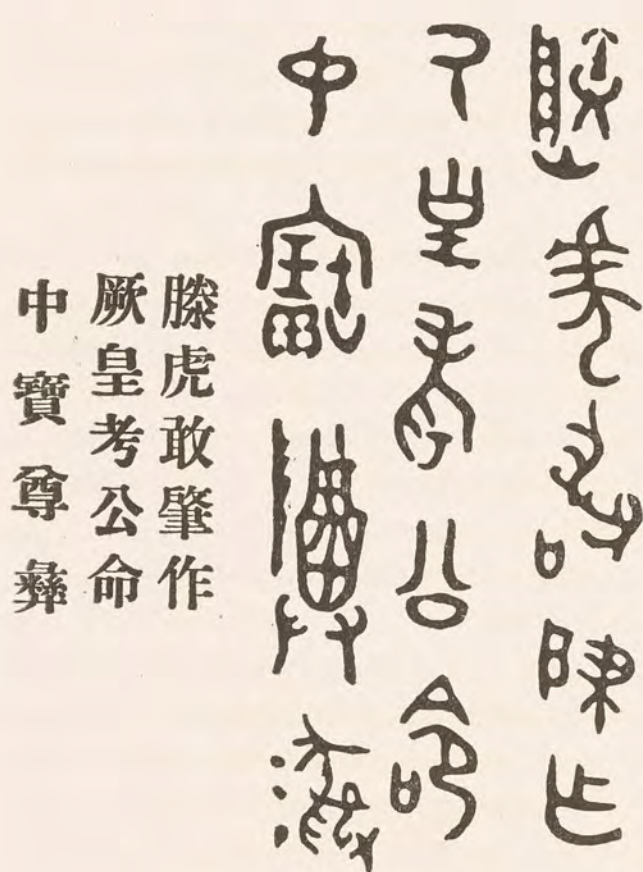 滕虎敢肇作
厥皇考公命
中寶尊彝
滕虎敢肇作
厥皇考公命
中寶尊彝